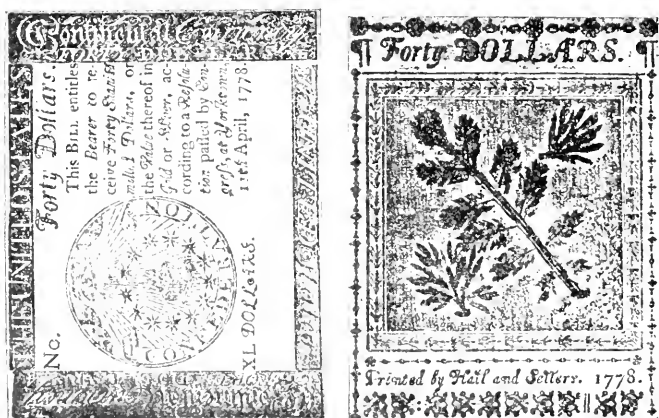 Continental Currency
THE UNITED STATES
No.
Forty Dollars.
This BILL entitles
the Bearer to re-
ceive Forty Spanish
milled Dollars, or
the Value thereof in
Gold or Silver, ac-
cording to a Resolu-
tion passed by Con-
gress, at Yorktown,
11th April, 1778.
CONFEDERATION
XL DOLLARS.
Forty DOLLARS.
Printed by Hall and Sellers. 1778.